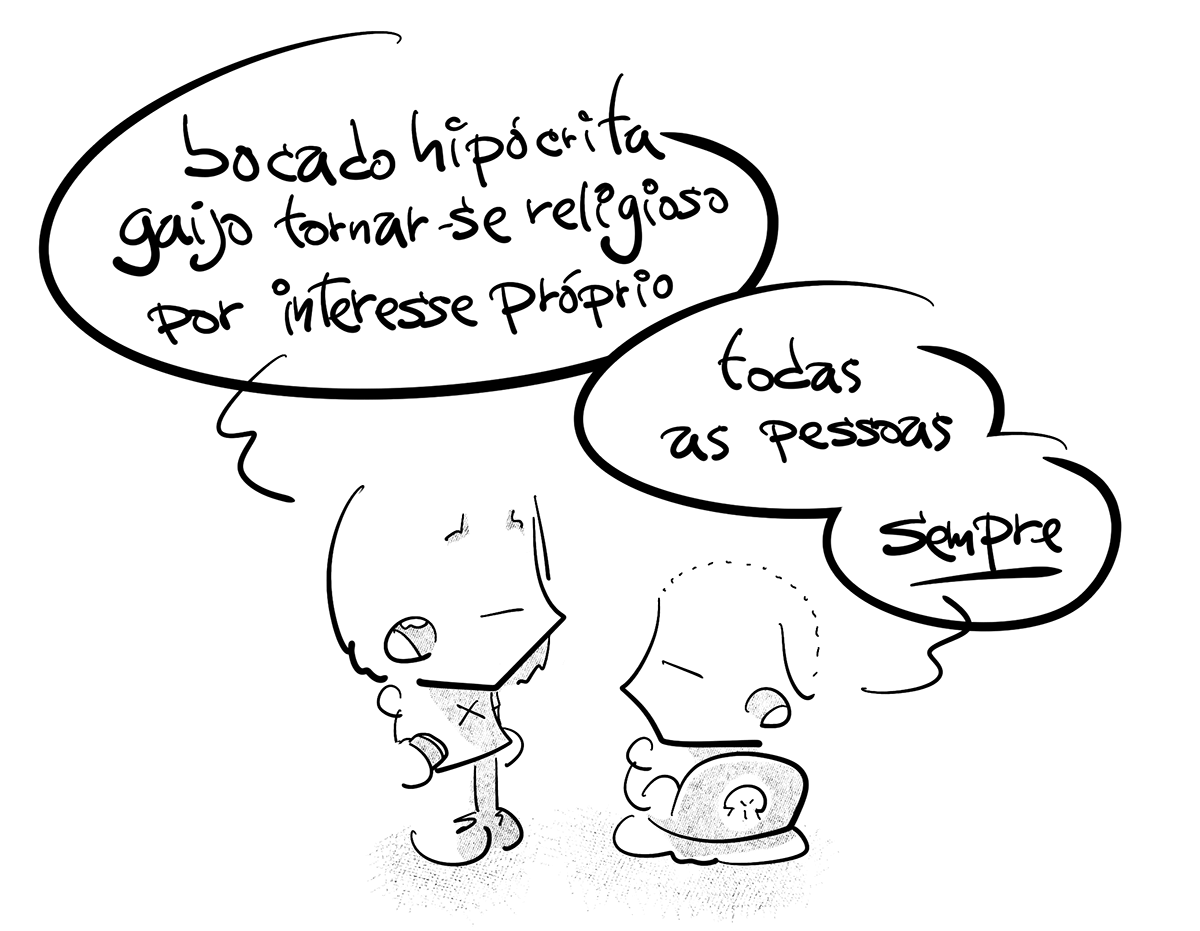 bocado hipócrita
gaijo tornar-se religioso
por interesse próprio
todas
as pessoas
sempre